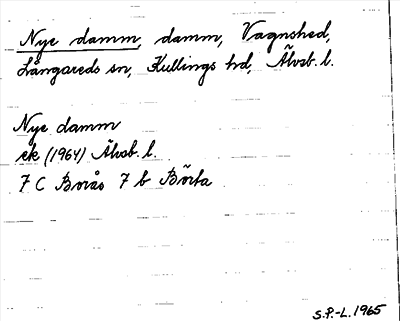 Nye damm, damm, Vagnshed,
Långareds sn, Kullings hd, Älvsb. l.
Nye damm
ek (1964) Älvsb. l.
7 C Borås 7 b Börta
S.P.-L. 1965